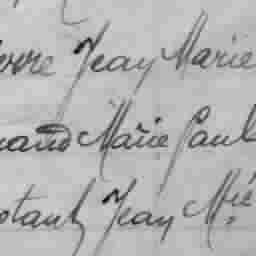 erre Jean Marie
nand Marie Paul
stant Jean Mie